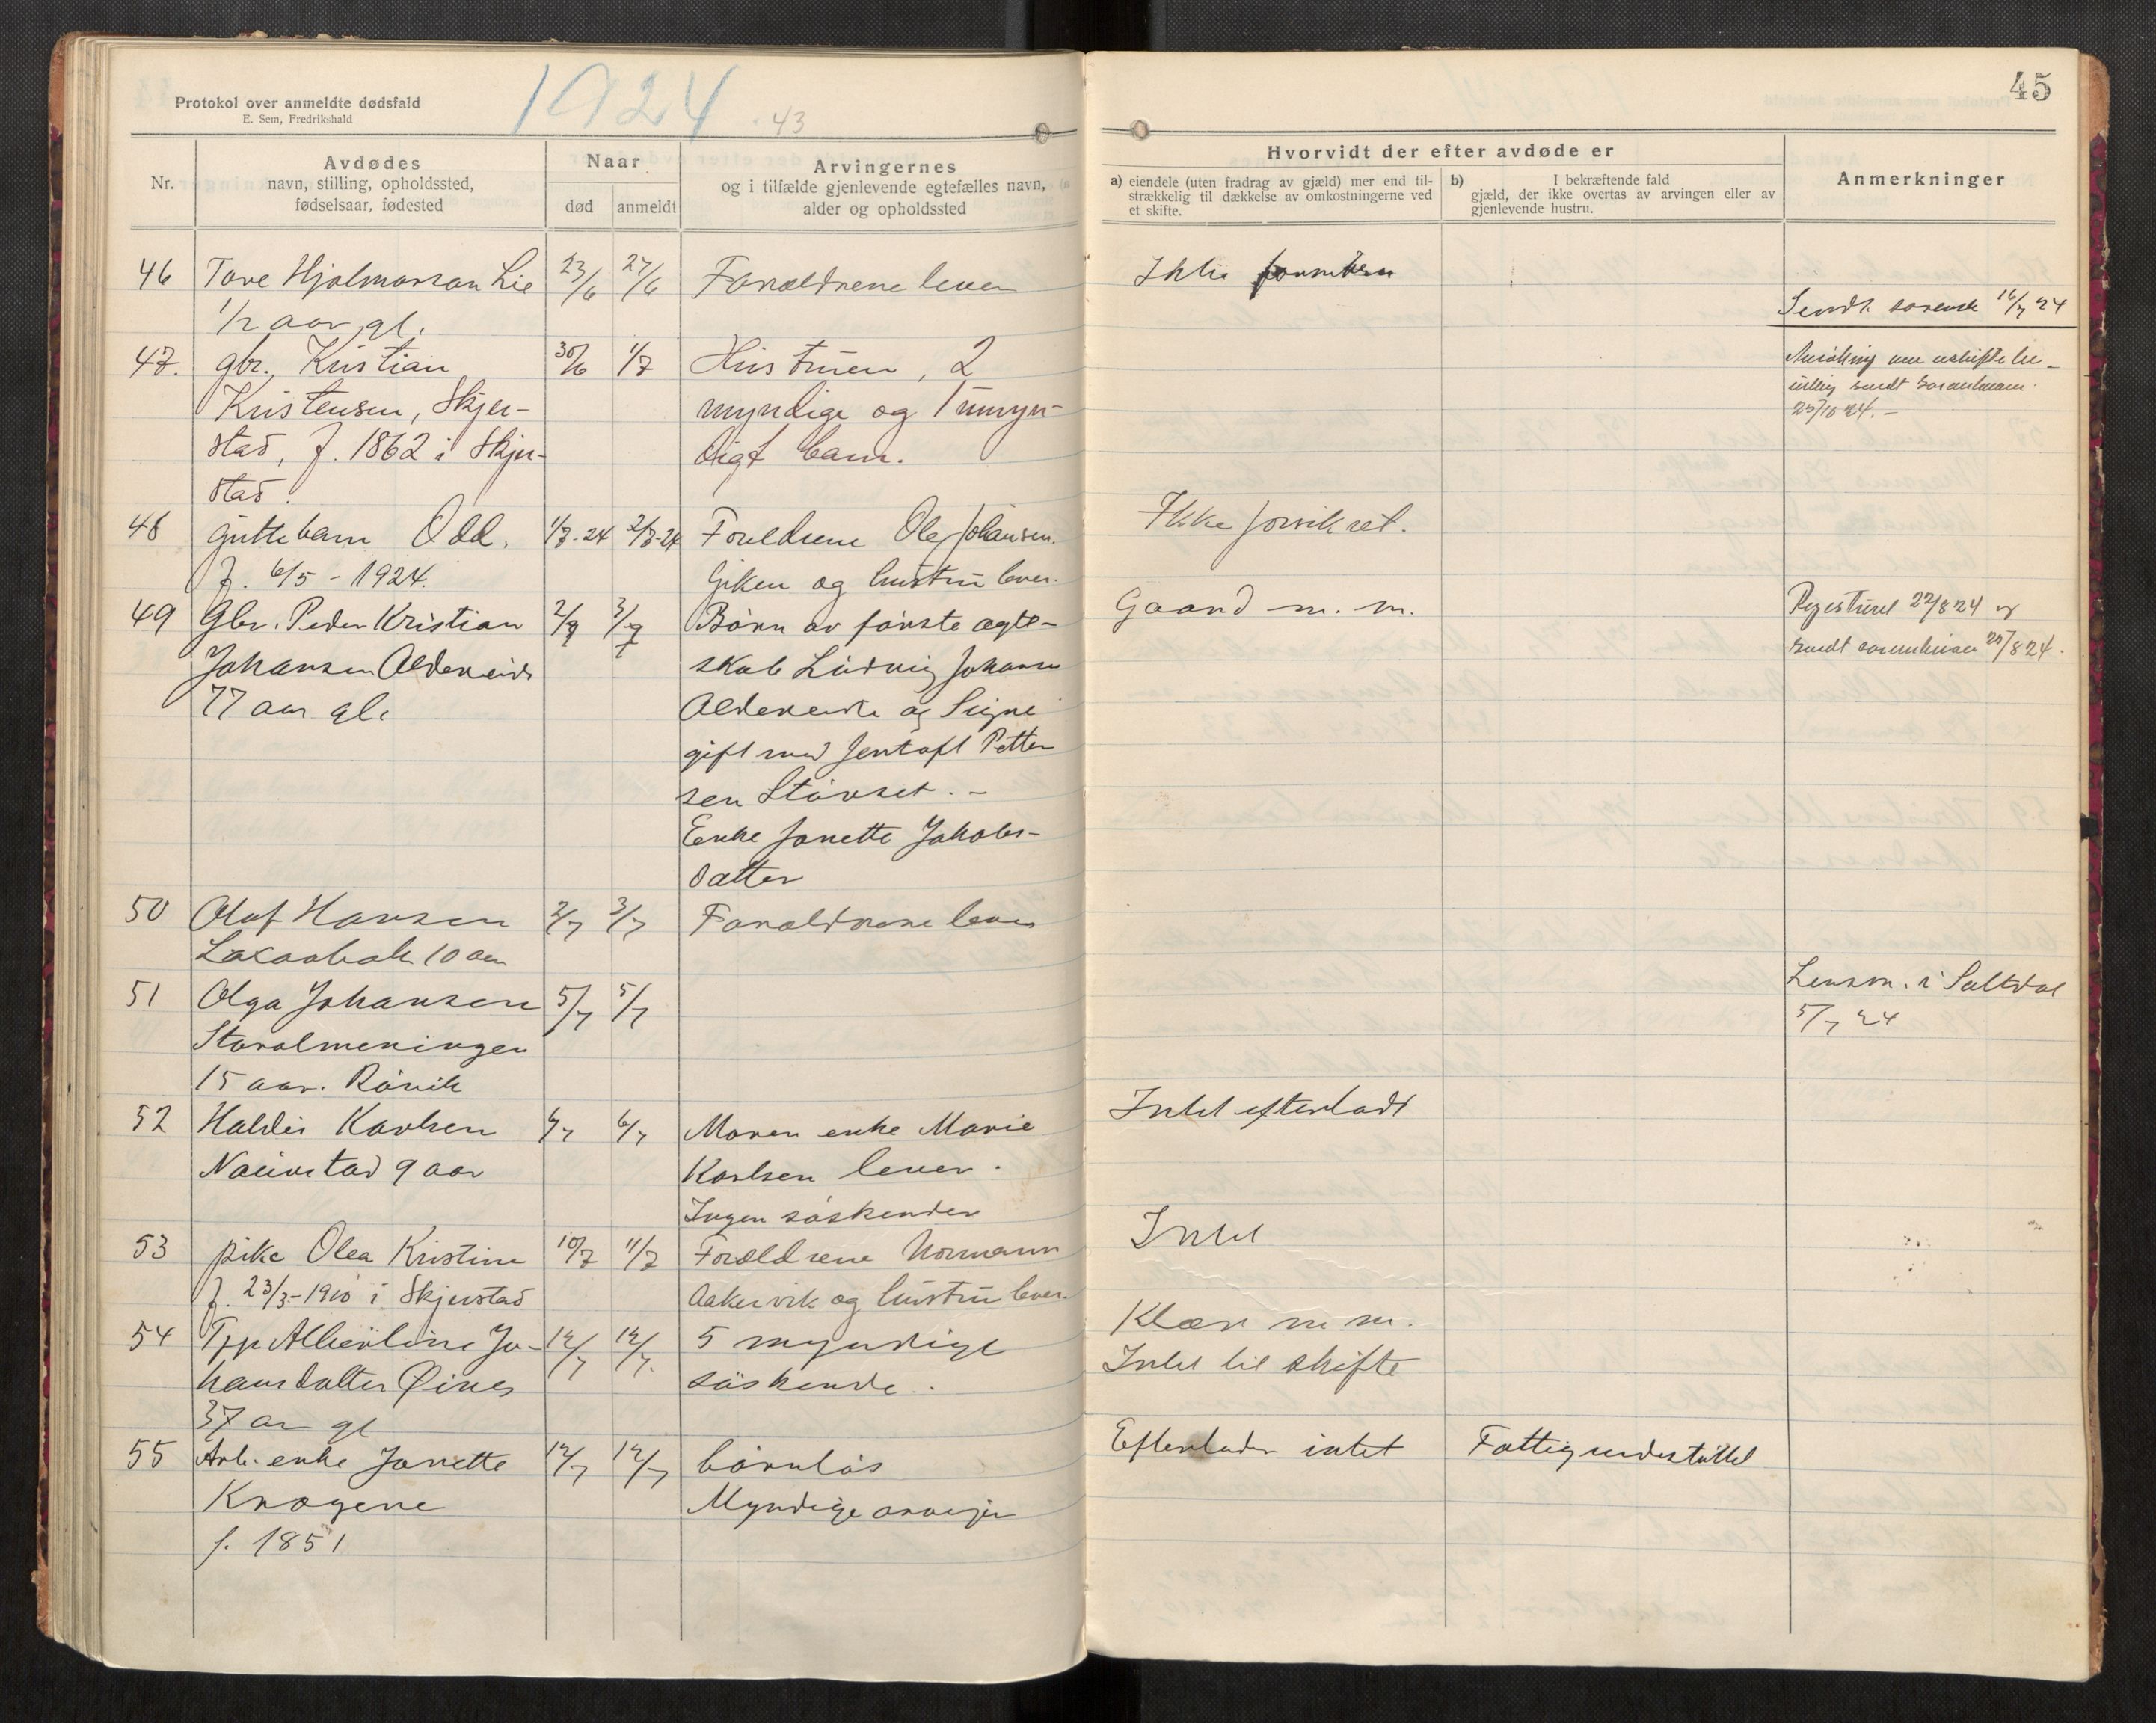 Protokol over anmeldte dødsfald
E. Sem, Fredrikshald
1924
43
45
Nr.
Avdødes
navn, stilling, opholdssted,
fødselsaar, fødested
Naar
død
anmeldt
Arvingernes
og i tilfælde gjenlevende egtefælles navn,
alder og opholdssted
Hvorvidt der efter avdøde er
a) eiendele (uten fradrag av gjæld) mer end til-
strækkelig til dækkelse av omkostningerne ved
et skifte.
b) I bekræftende fald
gjæld, der ikke overtas av arvingen eller av
gjenlevende hustru.
Anmerkninger
46 Tove Hjalmarsan Lie 23/6 27/6 Forældrene lever Ikke
1/2 aar gl.
Sendt sorensk 16/7 24
47. gbr. Kristian 30/6 1/7 Hustruen, 2
Kristensen, Skjer-
myndige og 1 umyn-
stad, f. 1862 i Skjer-
digt barn.
stad.
sendt
25/10 24. -
48 guttebarn Odd. 1/7-24 2/7-24 Foreldrene Ole Johansen. Ikke forsikret.
f. 6/5 - 1924. og hustru lever.
49 Gbr. Peder Kristian 2/7 3/7 Børn av første ægte- Gaard m. m. Registrert 22/8 24 og
Johansen Aldereide skab Ludvig Johans sendt 25/8 24.
77 aar gl. og Signe
gift med Jentoft Petter
sen Størset. -
Enke Janette Jakobs-
datter
50 Olaf Hansen 2/7 3/7 Forældrene lever
10 aar
51 Olga Johansen 5/7 5/7 Lensm. i Saltdal
Storalmeningen 5/7 24
15 aar. Røvik
52 Haldis Karlsen 6/7 Moren enke Marie Intet efterladt
9 aar Karlsen lever.
Ingen søskender
53 pike Olea Kristine 10/7 11/7 Forældrene Normann Intet
f. 23/3-1910 i Skjerstad Aakervik og hustru lever.
54 Jo- 12/7 12/7. 5 myndige Klær m m.
hansdatter Øines søskende. Intet til skifte
37 ar gl
55 Arb. enke Janette 12/7 12/7 barnløs Efterlader intet Fattigunderstøttet
Krogene Myndige arvinger
f. 1851